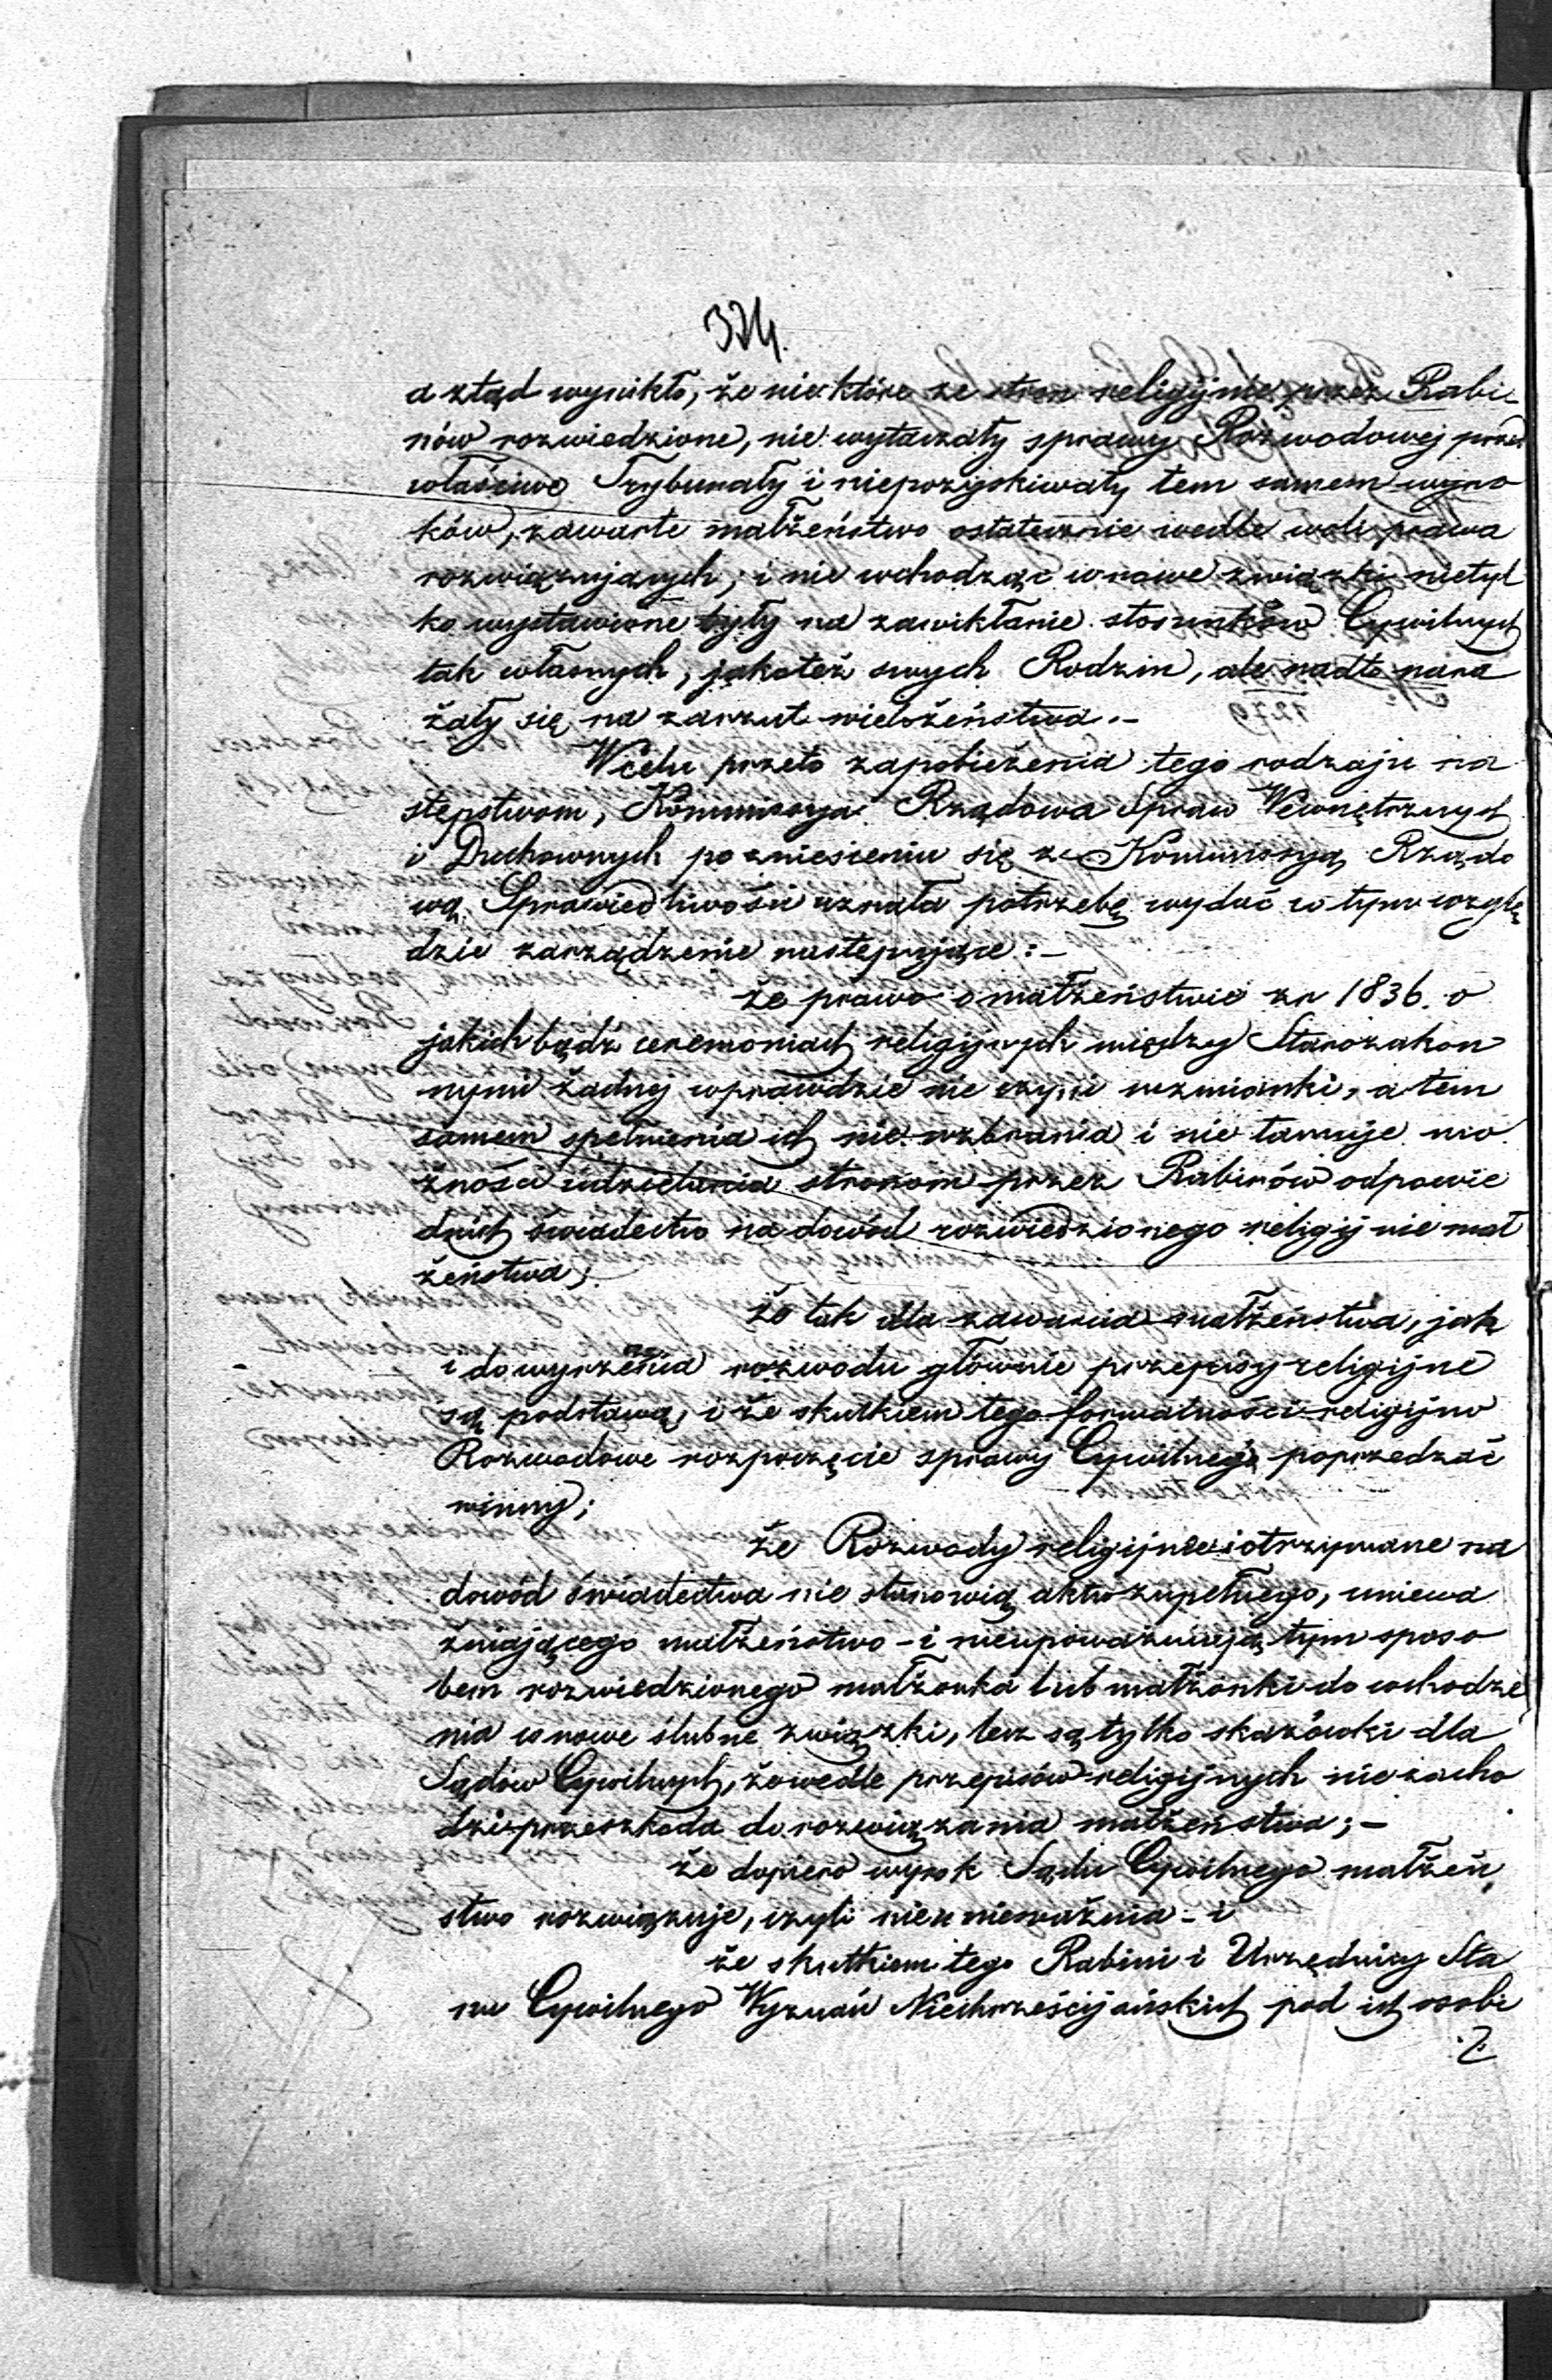 324.
a ztąd wynikło, że niektóre ze stron religijnie przez Rabi-
nów rozwiedzione, nie wytaczały sprawy Rozwodowej przed
właściwe Trybunały i niepozyskiwały tem samem wyro
ków, zawarte małżeństwo ostatecznie wedle woli prawa
rozwiązujących; i nie wchodząc w nowe związki nietyl
ko wystawione były na zawikłanie stosunków Cywilnych
tak własnych, jakoteż swych Rodzin, ale nadto nara
żały się na zarzut wielożeństwa.-
W celu przeto zapobieżenia tego rodzaju na
stępstwom, Kommissyja Rządowa Spraw Wewnętrznych
i Duchownych po zniesieniu się z Kommissyją Rządo
wą Sprawiedliwości uznała potrzebę wydać w tym wzglę
dzie zarządzenie następujące:-
że prawo o małżeństwie z r 1836. o
jakich bądź ceremoniach religijnych między Starozakon
nymi żadnej wprawdzie nie czyni wzmianki, a tem
samem spełnienia ich nie wzbrania i nie tamuje mo
żności udzielania stronom przez Rabinów odpowie
dnich świadectw na dowód rozwiedzionego religijnie mał
żeństwa;
że tak dla zawarcia małżeństwa, jak
i do wyrzeczenia rozwodu głównie przepisy religijne
są podstawą, i że skutkiem tego formalności religijno
Rozwodowe rozpoczęcie sprawy Cywilnej poprzedzać
winny;
że Rozwody religijne i otrzymane na
dowód świadectwa nie stanowią aktu zupełnego, uniewa
żniającego małżeństwo - i nieupoważniają tym sposo
bem rozwiedzionego małżonka lub małżonki do wchodze
nia w nowe ślubne związki, lecz są tylko skazówki dla
Sądów Cywilnych, że wedle przepisów religijnych nie zacho
dzi przeszkoda do rozwiązania małżeństwa; -
że dopiero wyrok Sądu Cywilnego małżeń
stwo rozwiązuje, czyli unieważnia - i
że skutkiem tego Rabini i Urzędnicy Sta
nu Cywilnego Wyznań Niechrześcijańskich pod ich osobi